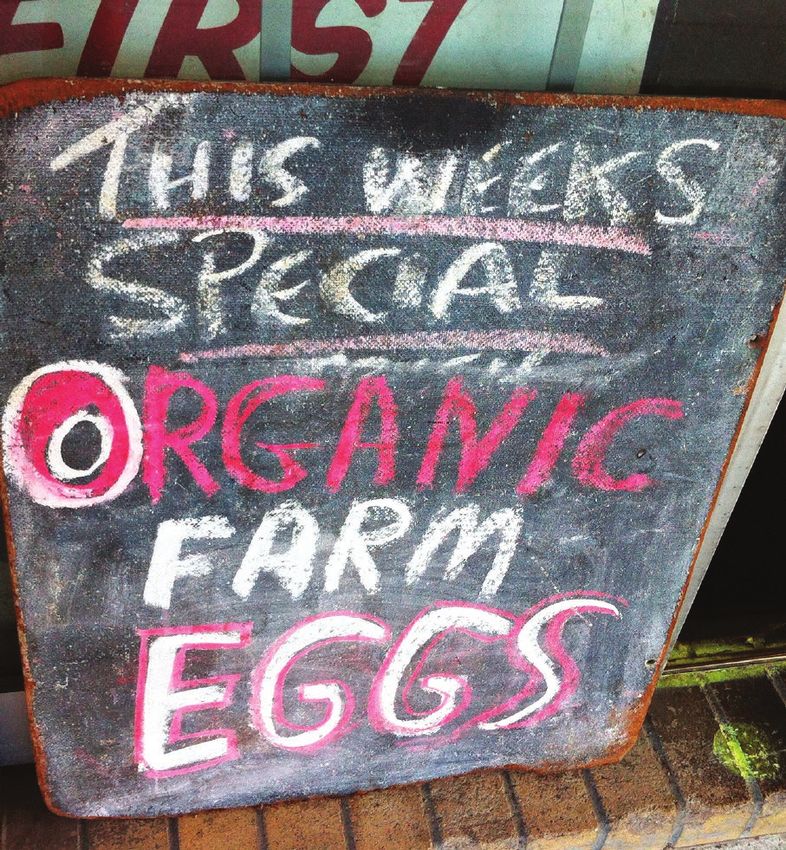 FIRST
THIS WEEKS
SPECIAL
ORGANIC
FARM
EGGS